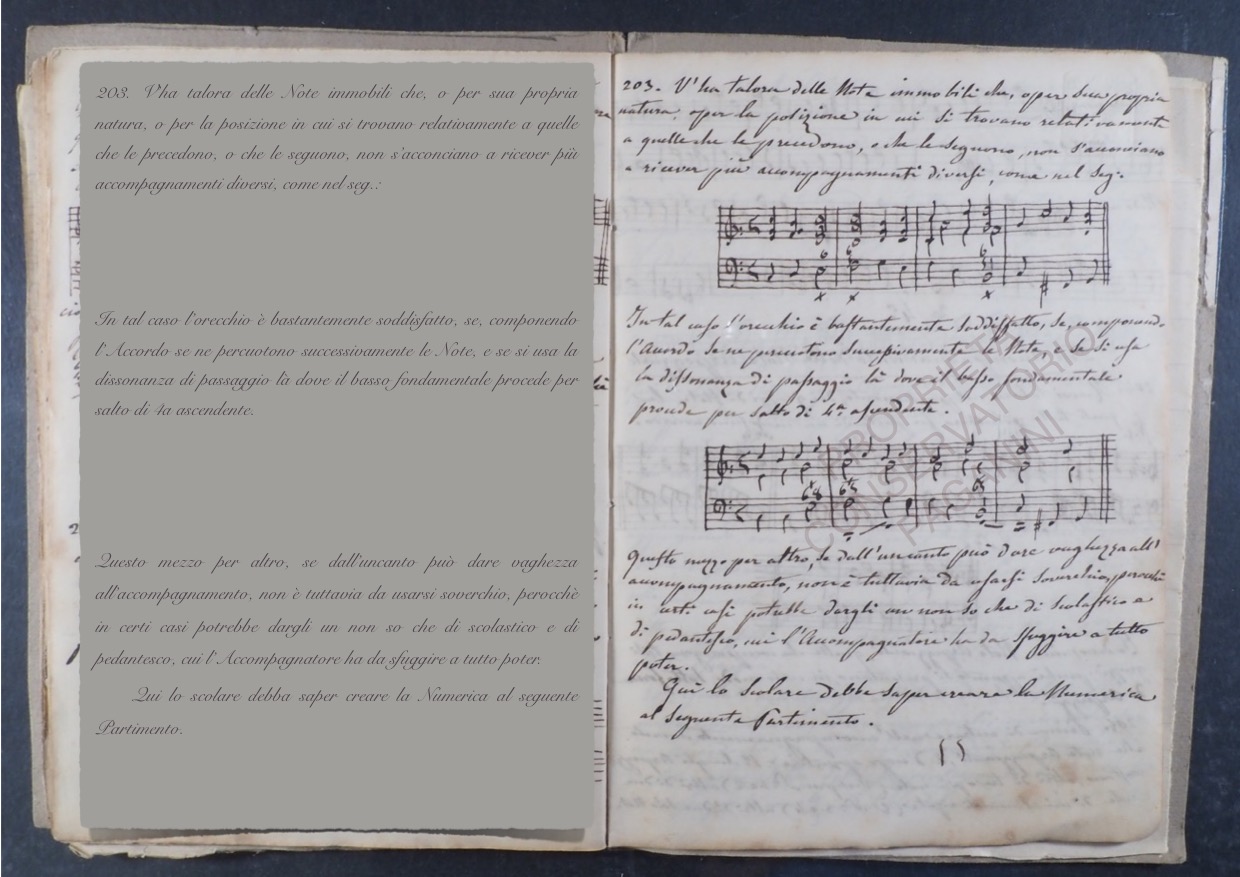 203. V'ha talora delle Note immobili che, o per sua propria
natura, o per la posizione in cui si trovano relativamente a quelle
che le precedono, o che le seguono, non s'acconciano a ricever più
accompagnamenti diversi, come nel seg.:
In tal caso l'orecchio è bastantemente soddisfatto, se, componendo
l'Accordo se ne percuotono successivamente le Note, e se si usa la
dissonanza di passaggio là dove il basso fondamentale procede per
salto di 4a ascendente.
Questo mezzo per altro, se dall'uncanto può dare vaghezza
all'accompagnamento, non è tuttavia da usarsi soverchio, perocchè
in certi casi potrebbe dargli un non so che di scolastico e di
pedantesco, cui l'Accompagnatore ha da sfuggire a tutto poter.
Qui lo scolare debba saper creare la Numerica al seguente
Partimento.
203. V'ha talora delle Note immobili che, o per sua propria
natura, o per la posizione in cui si trovano relativamente
a quelle che le precedono, o che le seguono, non s'acconciano
a ricever più accompagnamenti diversi, come nel Seg.:
In tal caso l'orecchio è bastantemente soddisfatto, se, componendo
l'Accordo se ne percuotono successivamente le Note, e se si usa
la dissonanza di passaggio là dove il basso fondamentale
procede per salto di 4a ascendente.
Questo mezzo per altro, se dall'uncanto può dare vaghezza all'
accompagnamento, non è tuttavia da usarsi soverchio, perocchè
in certi casi potrebbe dargli un non so che di scolastico e
di pedantesco, cui l'Accompagnatore ha da sfuggire a tutto
poter.
Qui lo scolare debbe saper creare la Numerica
al seguente Partimento.
PROPRIETÀ
CONSERVATORIO
PAGANINI